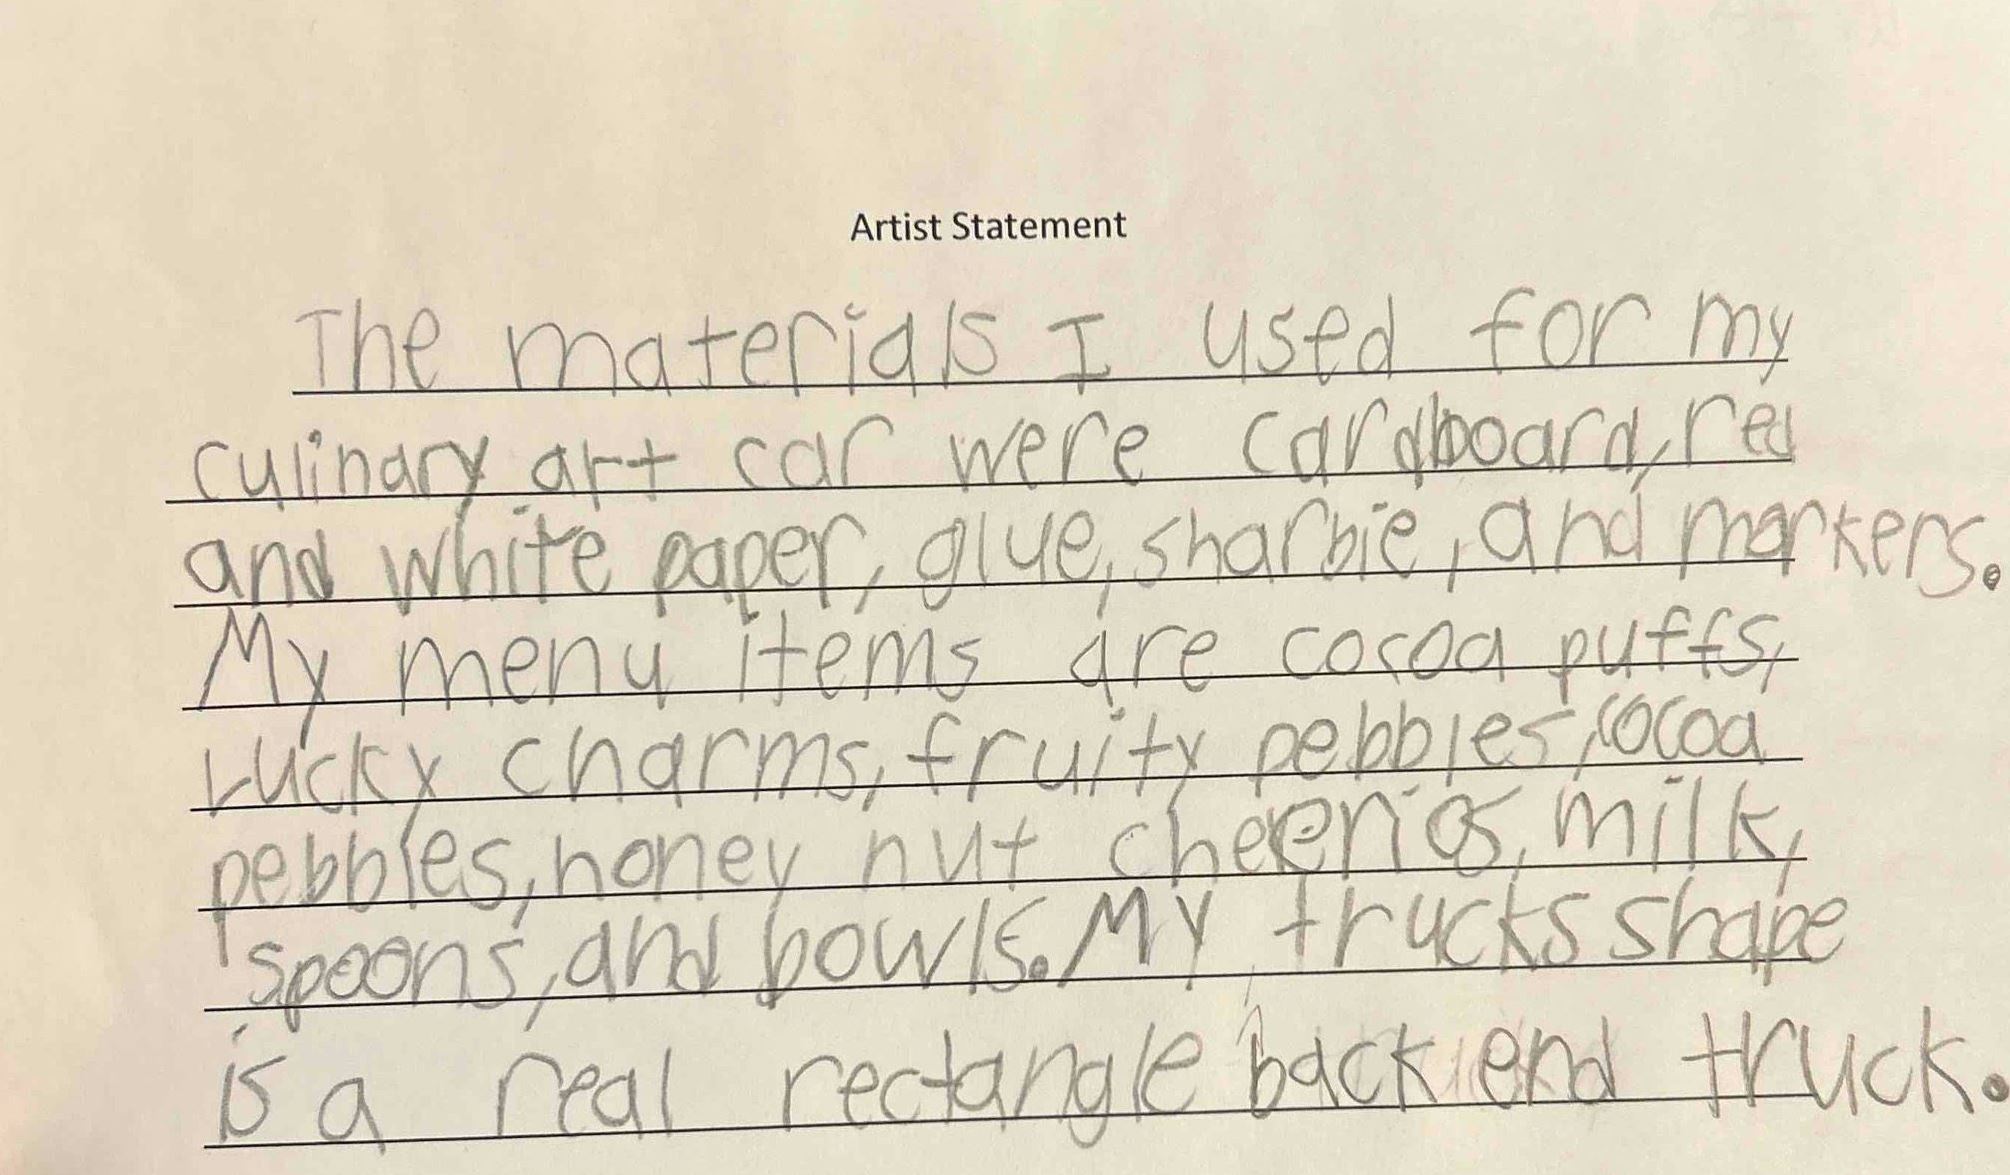 Artist Statement
The materials I used for my
culinary art car were cardboard, red
and white paper, glue, sharbie, and markers.
My menu items are cocoa puffs,
Lucky charms, fruity pebbles, cocoa
pebbles, honey nut cheerios, milk,
spoons, and bowls. My trucks shape
is a real rectangle back end truck.